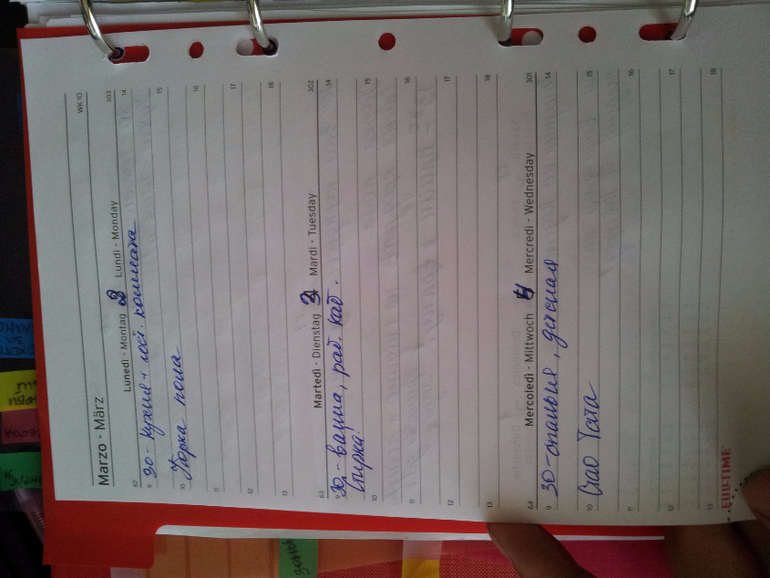 Marzo - März WK 10
62 Lunedì - Montag 2 Lundi - Monday 303
9 ЗО - Кухня + гост. комната 14
10 Уборка пола 15
11 16
12 17
13 18
63 Martedì - Dienstag 3 Mardi - Tuesday 302
9 ЗО - ванна, раб. каб. 14
Стирка!
10 15
11 16
12 17
13 18
64 Mercoledì - Mittwoch 4 Mercredi - Wednesday 301
9 ЗО - спальня, детская 14
10 Тата 15
11 16
12 17
13 18
EURTIME